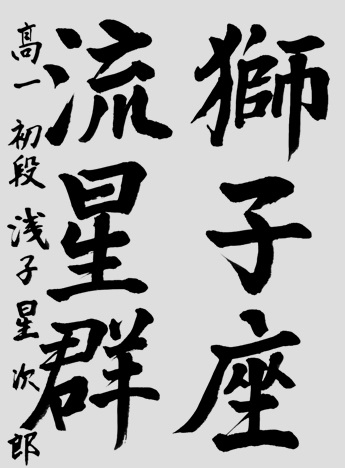 獅子座
流星群
高一 初段 浅子星次郎